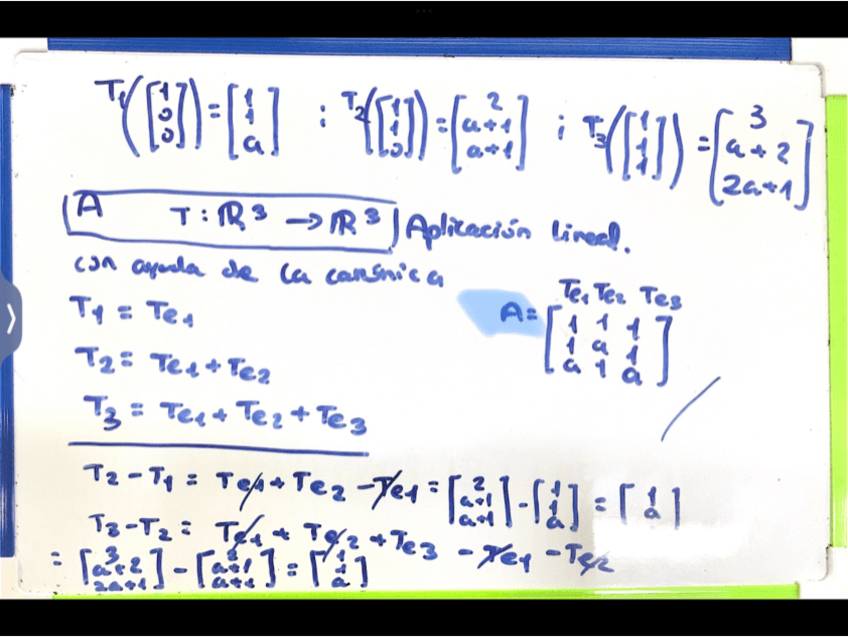 T₁([1 0 0]) = [1 1 a] ; T₂([1 1 0]) = [2 a+1 a+1] ; T₃([1 1 1]) = [3 a+2 2a+1]
A T : ℝ³ → ℝ³ Aplicación lineal.
con ayuda de la canónica
T₁ = Te₁
T₂ = Te₁ + Te₂
T₃ = Te₁ + Te₂ + Te₃
Te₁ Te₂ Te₃
A = [1 1 1
1 a 1
a 1 a]
T₂ - T₁ = Te₁ + Te₂ - Te₁ = [2 a+1 a+1] - [1 1 a] = [1 a 1]
T₃ - T₂ = Te₁ + Te₂ + Te₃ - Te₁ - Te₂
= [3 a+2 2a+1] - [2 a+1 a+1] = [1 1 a]